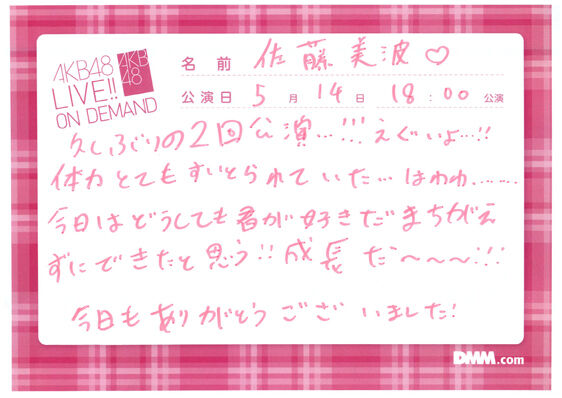 AKB48
LIVE!!
ON DEMAND
AKB
48
名前 佐藤美波♡
公演日 5月14日 18:00公演
久しぶりの2回公演…!!! えぐいよ…!!
体力とてもすいとられていた… はわわ……
今日はどうしても君が好きだまちがえ
ずにできたと思う!! 成長だ〜〜〜!!!
今日もありがとうございました!
DMM.com